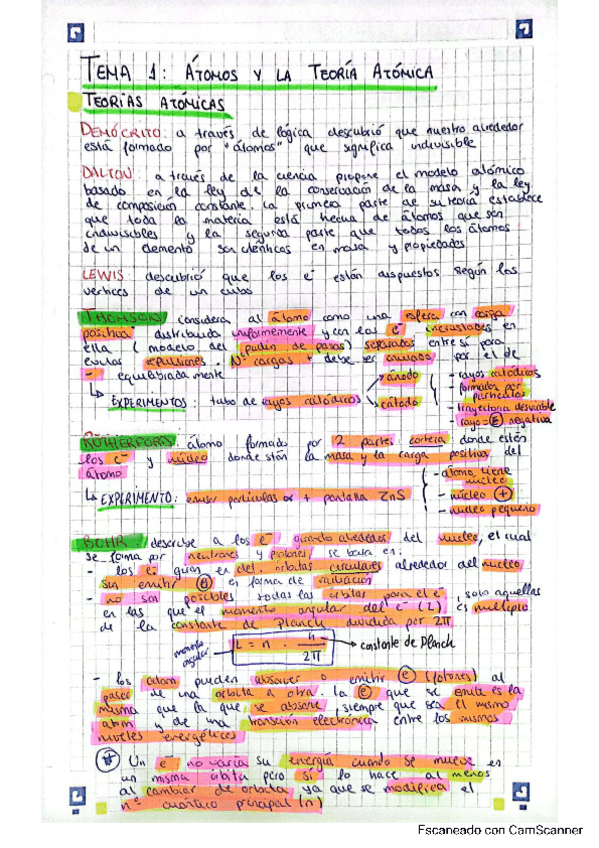 TEMA 1: ÁTOMOS Y LA TEORÍA ATÓMICA
TEORÍAS ATÓMICAS
DEMÓCRITO: a través de lógica descubrió que nuestro alrededor
está formado por "átomos" que significa indivisible
DALTON: a través de la ciencia propone el modelo atómico
basado en la ley de la conservación de la masa y la ley
de composición constante. La primera parte de su teoría establece
que toda la materia está hecha de átomos que son
indivisibles y la segunda parte que todos los átomos
de un elemento son idénticos en masa y propiedades
LEWIS: descubrió que los e⁻ están dispuestos según los
vértices de un cubo
THOMSON: considera al átomo como una esfera con carga
positiva distribuida uniformemente y con los e⁻ incrustados en
ella (modelo del pudin de pasas) separados entre sí para
evitar repulsiones. Nº cargas + debe ser por el de
- equilibradamente
EXPERIMENTOS: tubo de rayos catódicos
ánodo
cátodo
- rayos catódicos
- formados por
partículas
- trayectoria desviable
- rayo = E negativa
RUTHERFORD: átomo formado por 2 partes: corteza donde están
los e⁻ y núcleo donde están la masa y la carga positiva del
átomo
EXPERIMENTO: emitir partículas α + pantalla ZnS
- átomo tiene
núcleo
- núcleo +
- núcleo pequeño
BOHR: describe a los e⁻ girando alrededor del núcleo, el cual
se forma por neutrones y protones se basa en:
- los e⁻ giran en det. órbitas circulares alrededor del núcleo
sin emitir en forma de radiación
- no son posibles todas las órbitas para el e⁻, solo aquellas
en las que el momento angular del e⁻ (L) es múltiplo
de la constante de Planck dividida por 2π
momento
angular
L = n · h / 2π
constante de Planck
- los átom pueden absorver o emitir e (fotones) al
pasar de una órbita a otra. La E que se emite es la
misma que la que se absorve, siempre que sea el mismo
atom y de una transición electrónica entre los mismos
niveles energéticos
* Un e⁻ no varía su energía cuando se mueve en
un misma órbita pero sí lo hace al menos
al cambiar de órbita ya que se modifica el
nº cuántico principal (n)
Escaneado con CamScanner